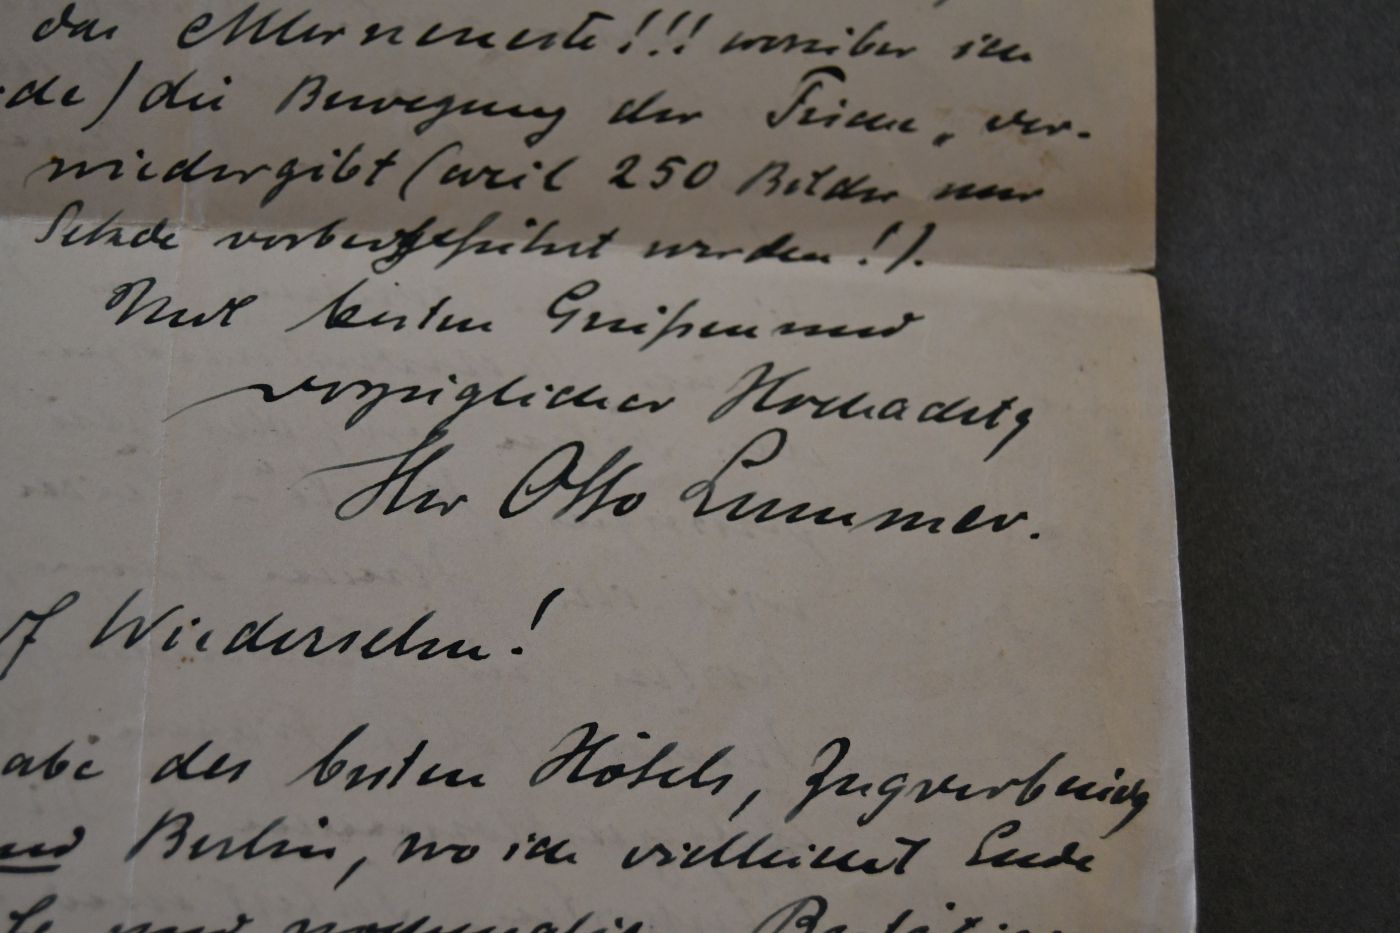 das Allerneueste!!! worüber ich
de) die Bewegung der Feinde, ver-
wiedergibt (weil 250 Bilder nur
Sekunde vorbeigeführt werden!).
Mit besten Grüßen und
vorzüglicher Hochachtg
Ihr Otto Lummer.
f Wiedersehen!
abe des besten Hôtels, Zugverbindg
und Berlin, wo ich vielleicht Ende
und nochmalige